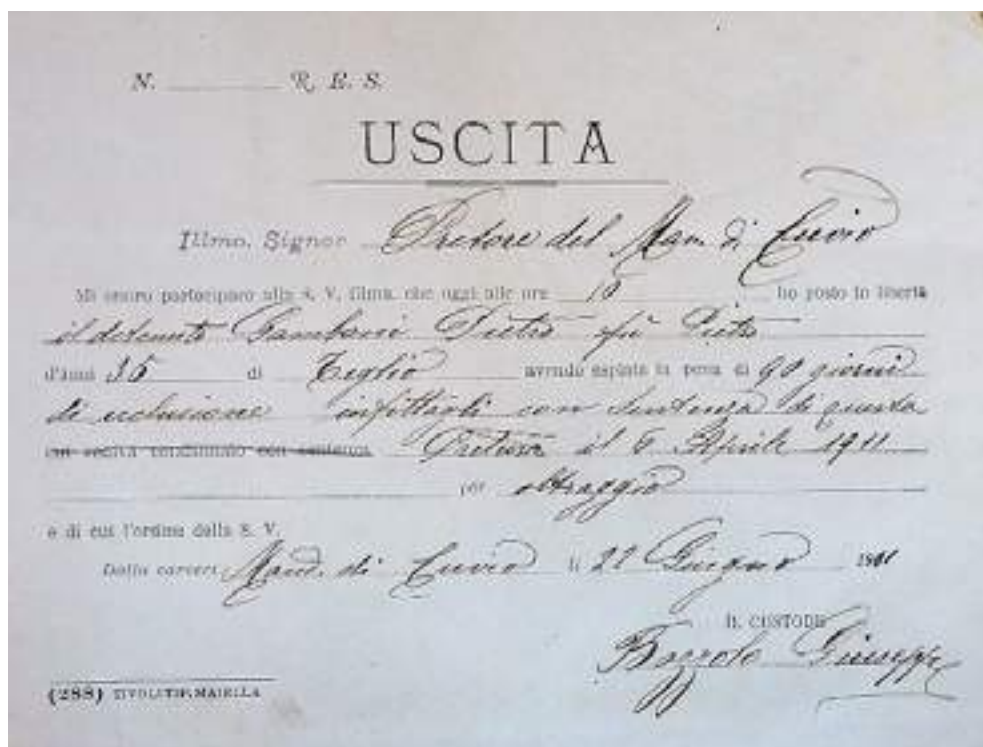 N. R. E. S.
USCITA
Illmo. Signor Pretore del Man. di Cuvio
Mi onoro partecipare alla S. V. Illma. che oggi alle ore 16 ho posto in libertà
il detenuto Gamberi Pietro fu Pietro
d'anni 36 di Teglio avendo espiata la pena di 90 giorni
di reclusione inflittagli con sentenza di questa
Pretura il 6 Aprile 1911
per oltraggio
e di cui l'ordine della S. V.
Dalle carceri Mand. di Cuvio li 21 Giugno
IL CUSTODE
Bozzolo Giuseppe
(288) TIVOLI TIP. MAIELLA